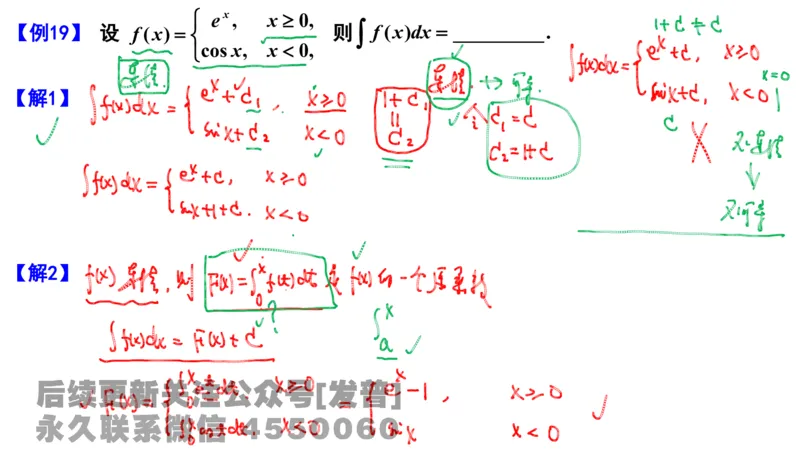 【例19】 设 f(x) = { e^x, x ≥ 0, cos x, x < 0, 则∫ f(x)dx = ________.
连续.
【解1】 ∫f(x)dx = { e^x + C₁, x ≥ 0
sin x + C₂ x < 0
1 + C₁ = C₂
连续. → 可导.
C₁ = C
C₂ = 1+C
∫f(x)dx = { e^x + C, x ≥ 0
sin x + 1 + C. x < 0
1 + C ≠ C
∫f(x)dx = { e^x + C, x ≥ 0
sin x + C, x < 0
x=0
C
不连续
↓
不可导
【解2】 f(x) 连续, 则 F(x) = ∫₀^x f(t)dt 是 f(x) 的一个原函数
?
∫f(x)dx = F(x) + C
∫_a^x
F(x) = { ∫₀^x e^t dt, x ≥ 0 = { e^x - 1, x ≥ 0
∫₀^x cos t dt, x < 0 sin x x < 0
后续更新关注公众号[发普]
永久联系微信 4550060